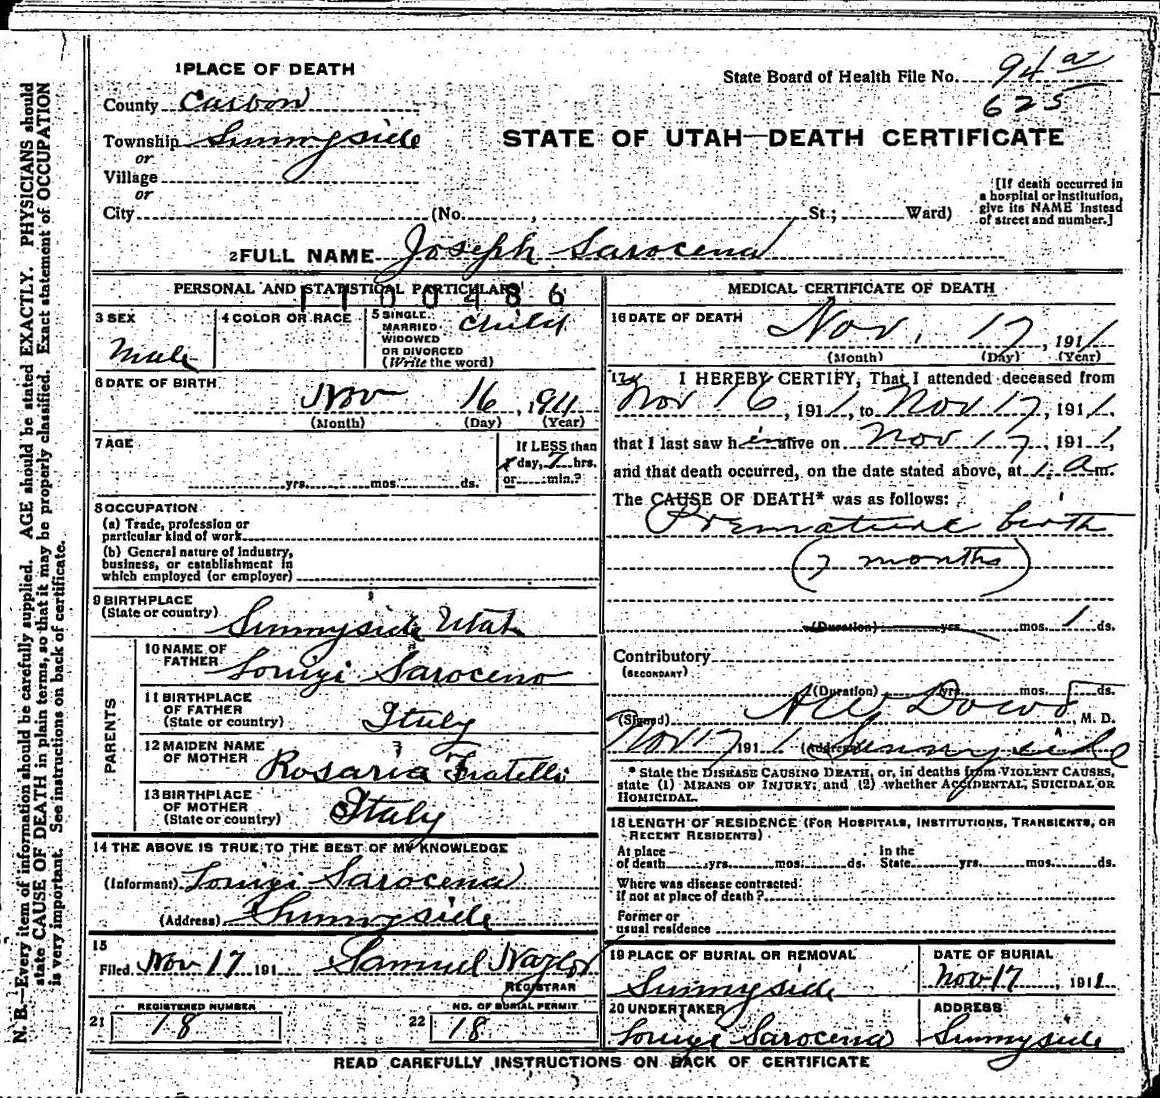 1 PLACE OF DEATH
State Board of Health File No. 94 a
625
County Carbon
Township Sunnyside
or
Village
or
City (No. , St.; Ward)
STATE OF UTAH—DEATH CERTIFICATE
[If death occurred in
a hospital or institution,
give its NAME instead
of street and number.]
2 FULL NAME Joseph Sarocena
PERSONAL AND STATISTICAL PARTICULARS
1100486
3 SEX
Male
4 COLOR OR RACE
5 SINGLE
MARRIED
WIDOWED
OR DIVORCED
(Write the word)
Child
6 DATE OF BIRTH
Nov 16, 1911
(Month) (Day) (Year)
7 AGE
yrs. mos. ds.
If LESS than
1 day, 7 hrs.
or min.?
8 OCCUPATION
(a) Trade, profession or
particular kind of work
(b) General nature of industry,
business, or establishment in
which employed (or employer)
9 BIRTHPLACE
(State or country)
Sunnyside Utah
PARENTS
10 NAME OF
FATHER
Louigi Saroceno
11 BIRTHPLACE
OF FATHER
(State or country)
Italy
12 MAIDEN NAME
OF MOTHER
Rosaria Fratelli
13 BIRTHPLACE
OF MOTHER
(State or country)
Italy
14 THE ABOVE IS TRUE TO THE BEST OF MY KNOWLEDGE
(Informant) Louigi Sarocena
(Address) Sunnyside
15
Filed Nov 17 191 Samuel Naylor
REGISTRAR
REGISTERED NUMBER
21 18
NO. OF BURIAL PERMIT
22 18
MEDICAL CERTIFICATE OF DEATH
16 DATE OF DEATH
Nov. 17, 1911
(Month) (Day) (Year)
17 I HEREBY CERTIFY, That I attended deceased from
Nov 16, 1911, to Nov 17, 1911.
that I last saw him alive on Nov 17, 1911,
and that death occurred, on the date stated above, at 1 a m.
The CAUSE OF DEATH* was as follows:
Premature birth
(7 months)
(Duration) yrs. mos. 1 ds.
Contributory
(SECONDARY)
(Duration) yrs. mos. ds.
(Signed) A W Dowd, M. D.
Nov 17 1911 (Address) Sunnyside
* State the DISEASE CAUSING DEATH, or, in deaths from VIOLENT CAUSES,
state (1) MEANS OF INJURY; and (2) whether ACCIDENTAL, SUICIDAL OR
HOMICIDAL.
18 LENGTH OF RESIDENCE (FOR HOSPITALS, INSTITUTIONS, TRANSIENTS, OR
RECENT RESIDENTS)
At place
of death yrs. mos. ds.
In the
State yrs. mos. ds.
Where was disease contracted
if not at place of death?
Former or
usual residence
19 PLACE OF BURIAL OR REMOVAL
Sunnyside
DATE OF BURIAL
Nov 17, 1911
20 UNDERTAKER
Louigi Sarocena
ADDRESS
Sunnyside
READ CAREFULLY INSTRUCTIONS ON BACK OF CERTIFICATE
N. B.—Every item of information should be carefully supplied. AGE should be stated EXACTLY. PHYSICIANS should
state CAUSE OF DEATH in plain terms, so that it may be properly classified. Exact statement of OCCUPATION
is very important. See instructions on back of certificate.